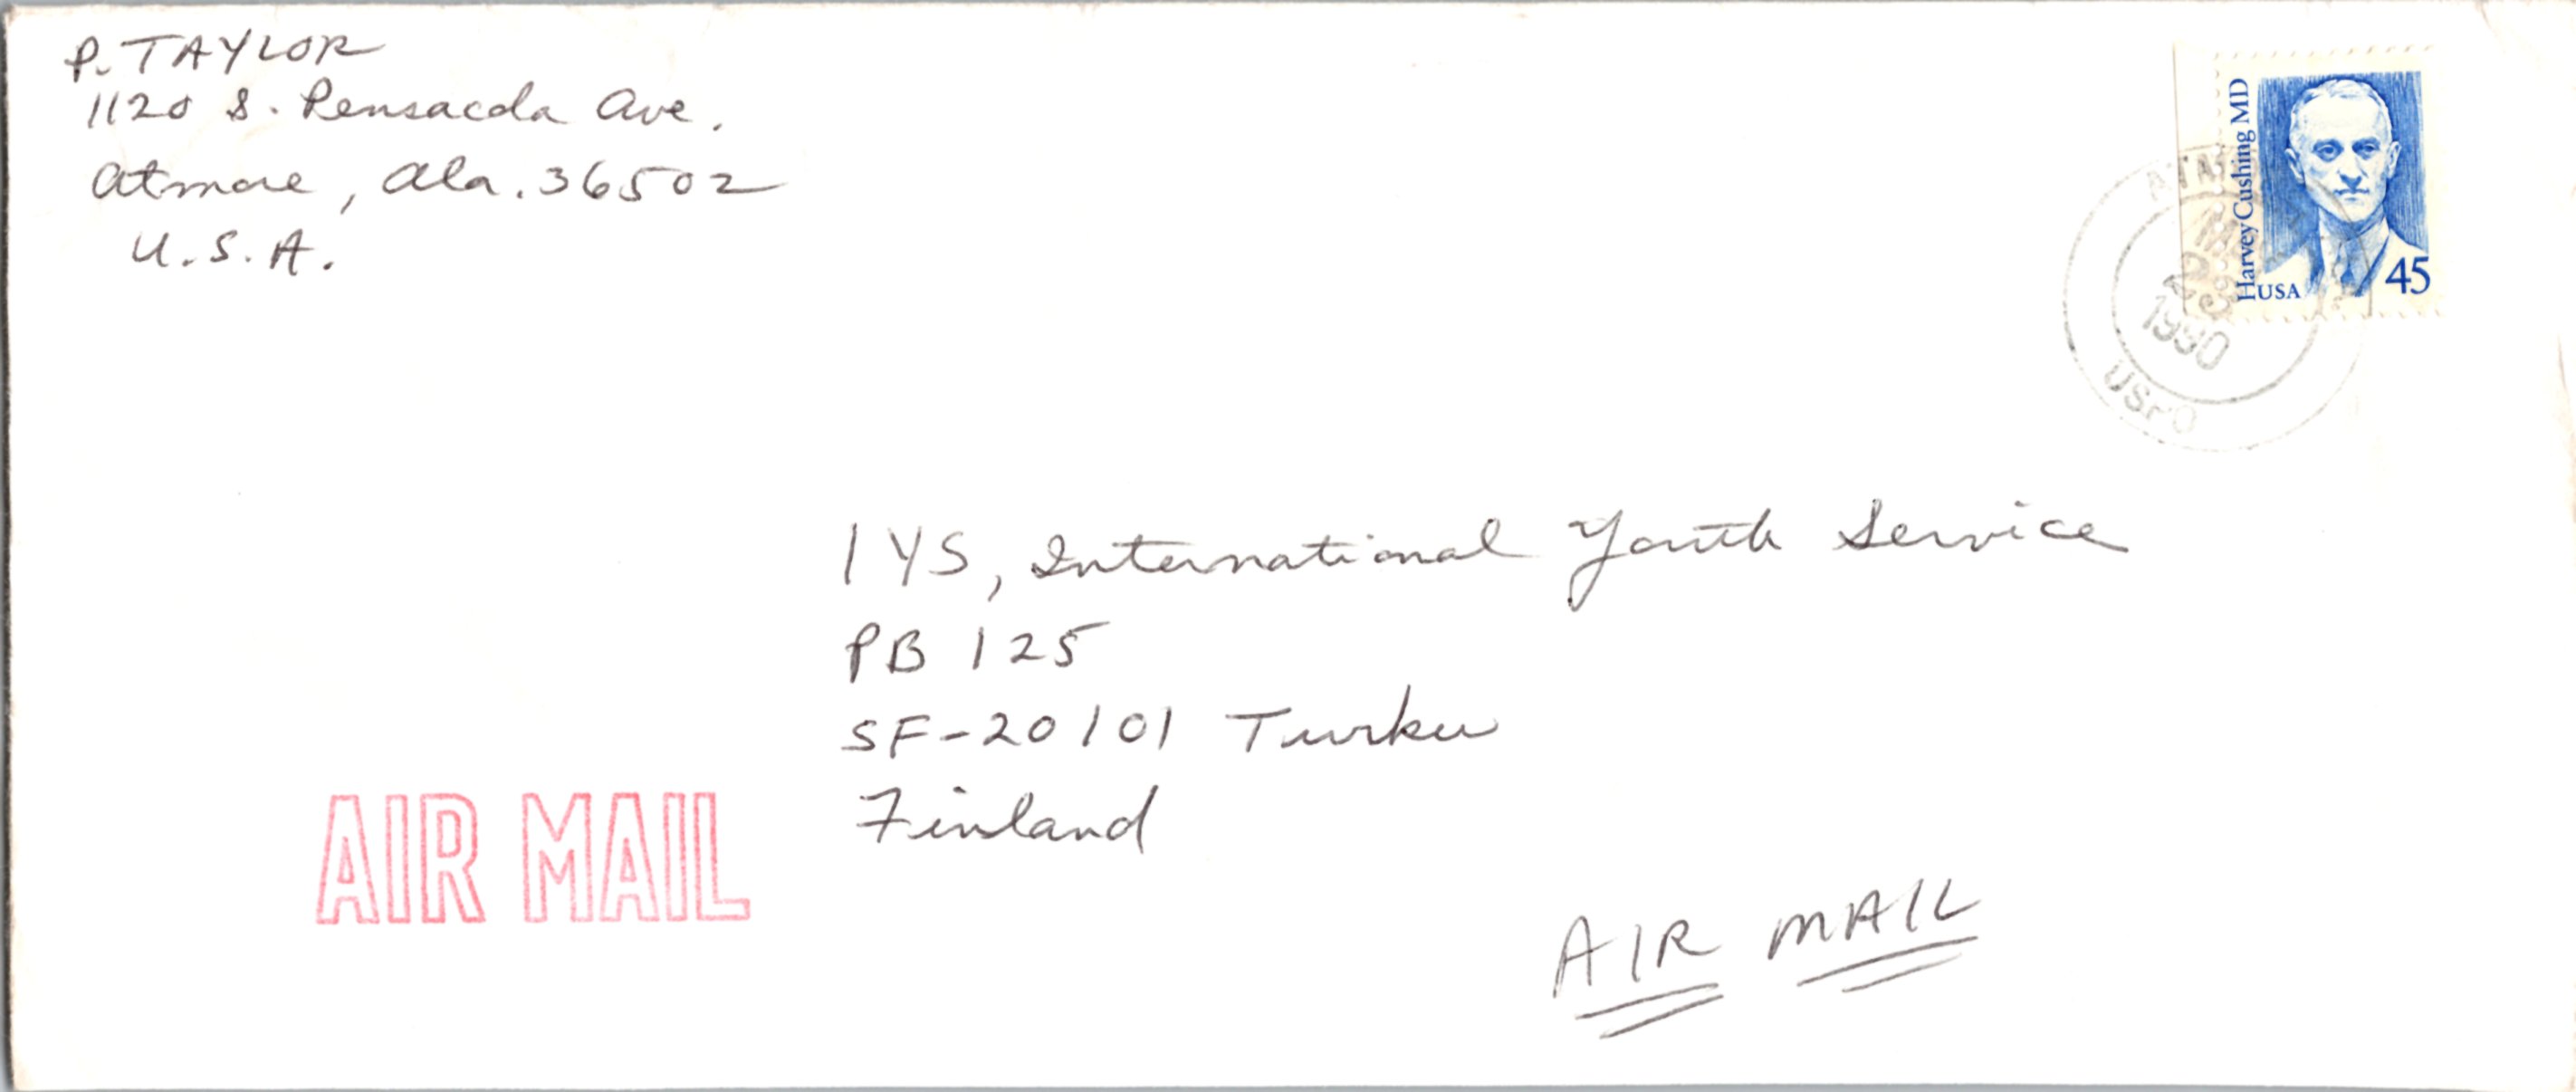 P. TAYLOR
1120 S. Pensacola Ave.
Atmore, Ala. 36502
U.S.A.
Harvey Cushing MD
USA 45
1990
USPO
IYS, International Youth Service
PB 125
SF-20101 Turku
Finland
AIR MAIL
AIR MAIL